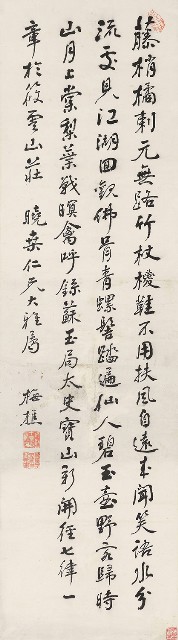 藤梢橘刺元無路竹杖椶鞋不用扶風自遠來聞笑語水分
流處見江湖回觀佛骨青螺髻踏遍仙人碧玉壺野客歸時
山月上棠梨葉戰暝禽呼錄蘇玉局太史寶山新開徑七律一
章於筱雲山莊 曉 仁兄大雅屬
梅樵